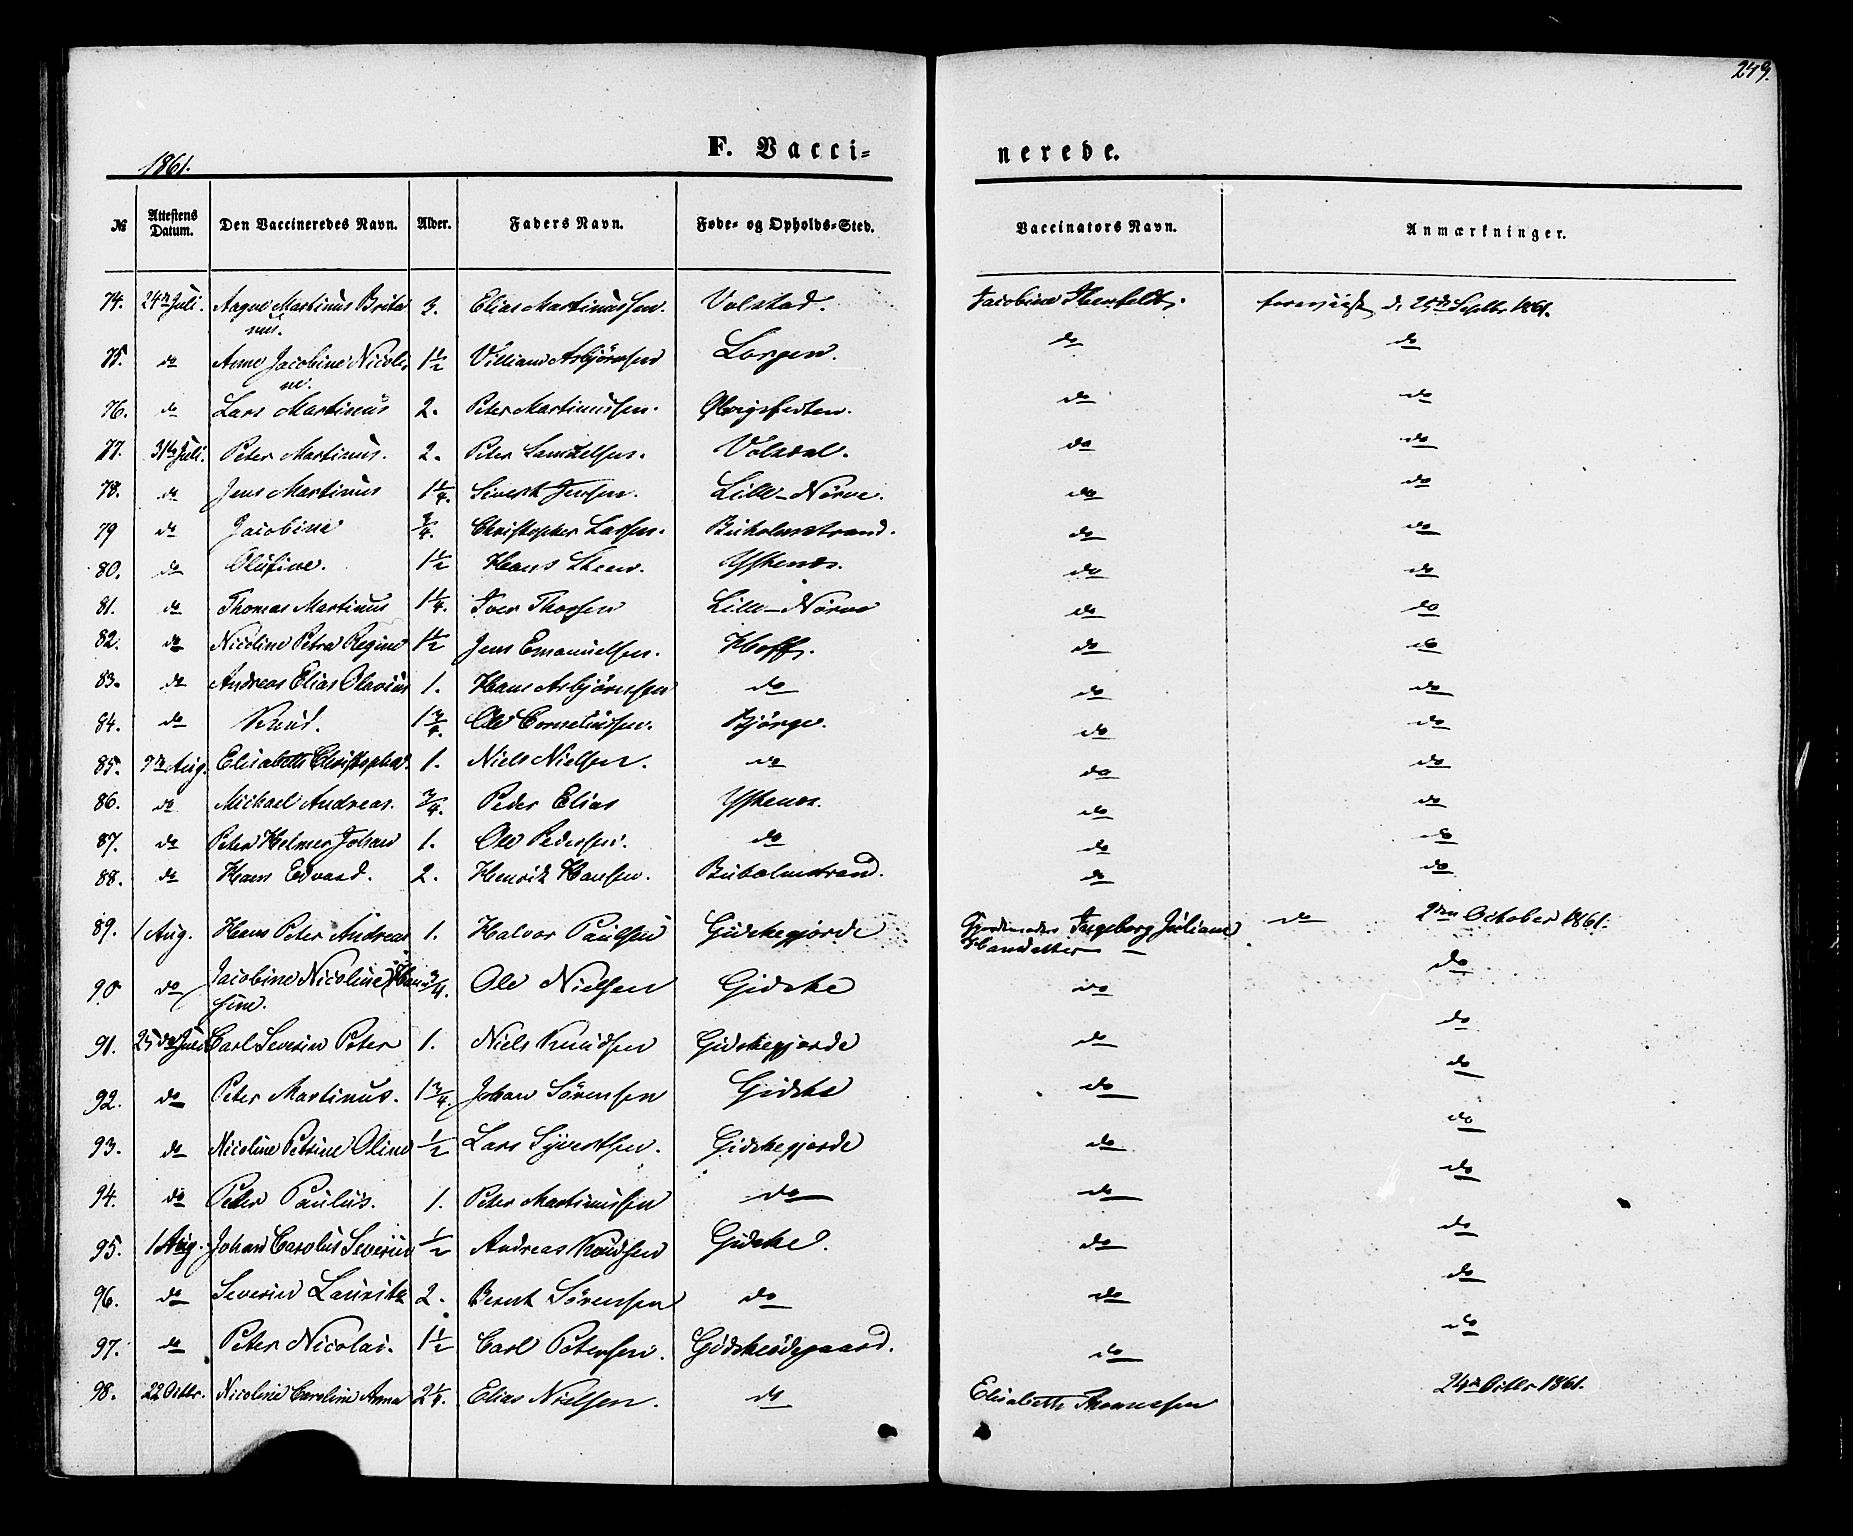 249.
1861.
F. Vacci-
nerede.
№ Attestens Datum. Den Vaccineredes Navn. Alder. Faders Navn. Føde- og Opholds-Sted. Vaccinators Navn. Anmærkninger.
74. 24de Juli. Martinus 3. Elias Martinussen. Volstad. Jacobine d. 25de Septbr 1861.
75. do Anne Jacobine Nicoli 1½ Villiam Asbjørnsen Lorgen. do do
ne.
76. do Lars Martinus 2. Peter Martinussen. do do
77. 31te Juli. Peter Martinus. 2. Peter Samuelsen. Volsdal. do do
78. do Jens Martinus 1¼. Sivert Jensen. Lille-Nørve. do do
79 do Jacobine ¾. Christopher Larsen. Buholmstrand. do do
80. do Olufine. 1½ Hans Steen. Ystenes. do do
81. do Thomas Martinus 1¼. Iver Thorsen Lille-Nørve do do
82. do Nicoline Petra Regine 1½ Jens Emanuelsen. Hoff. do do
83. do Andreas Elias Olavius 1. Hans Asbjørnsen do do do
84. do Knud. 1¾. Ole Corneliussen. Bjørge. do do
85. 9de Aug. Elisabeth Christopha. 1. Niels Nielsen. do do do
86. do Michael Andreas. ¾. Peder Elias Ystenes. do do
87. do Peter Helmer Johan 1. Ole Pedersen. do do do
88. do Hans Edvard. 2. Henrik Hansen. Buholmstrand. do do
89. 1 Aug. Hans Peter Andreas 1. Halvor Paulsen Gidskegjørde Gjordemoder Ingeborg Juliane do 2den October 1861.
Hansdatter
90 do Jacobine Nicoline Han ¾. Ole Nielsen Gidske do do
sine.
91. 25de Juli Carl Severin Peter 1. Niels Knudsen Gidskegjørde do do
92. do Peter Martinus. 1¾. Johan Sørensen Gidske do do
93. do Nicoline Petrine Oline ½ Lars Syvertsen. Gidskegjørde do do
94. do Peter Paulus. 1. Peter Martinussen do do do
95. 1 Aug. Johan Carolus Severin ½ Andreas Knudsen Gidske. do do
96. do Severin Lauritz 2. Bernt Sørensen do do do
97. do Peter Nicolai. 1½ Carl Petersen. Gidskeødegaard. do do
98. 22 Octbr. Nicoline Caroline Anna 2¼. Elias Nielsen. do Elisabeth 24de Octbr 1861.